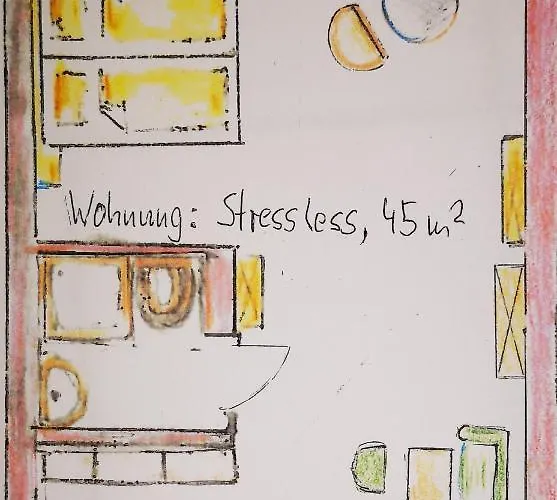 Wohnung: Stressless, 45 m²